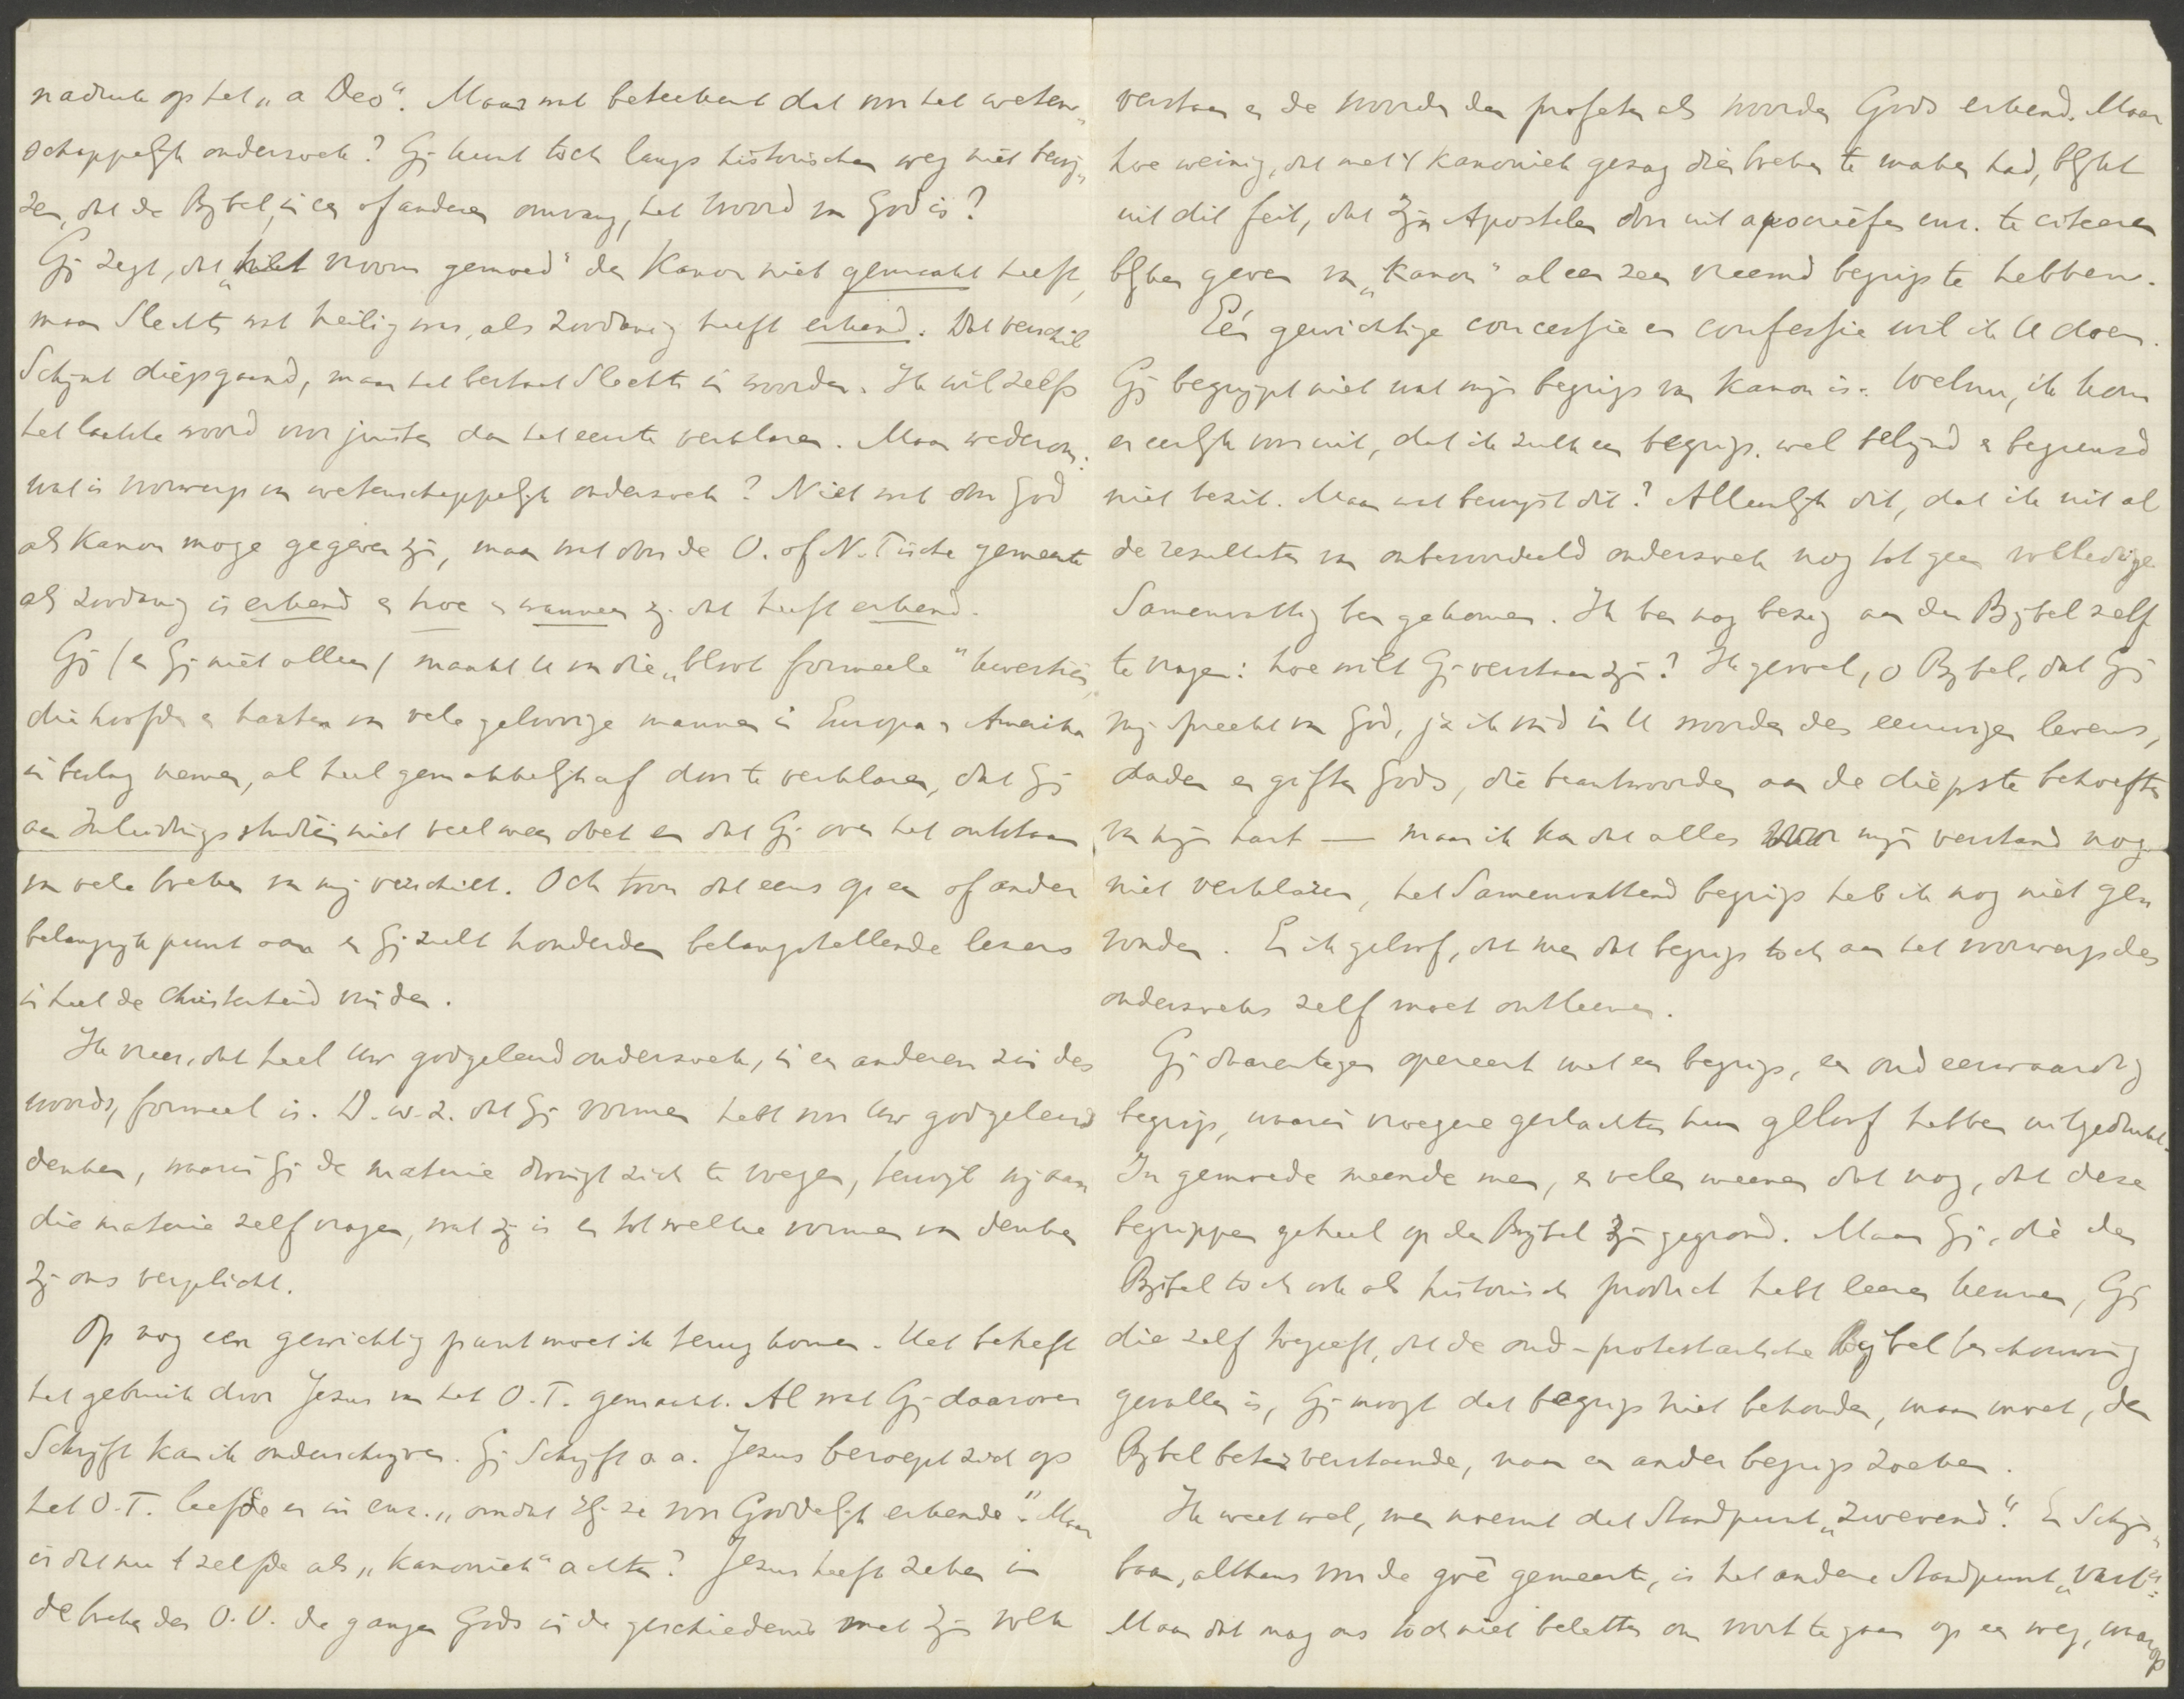 nadruk op het „a Deo“. Maar wat beteekent dat voor het weten„
schappelijk onderzoek? Gij kunt toch langs historischen weg niet bewij„
zen, dat de Bijbel, in een of anderen omvang, het Woord van God is?
Gij zegt, dat „het vroom gemoed“ den Kanon niet gemaakt heeft,
maar slechts wat heilig was, als zoodanig heeft erkend. Dat verschil
schijnt diepgaand, maar het bestaat slechts in woorden. Ik wil zelfs
het laatste woord voor juister dan het eerste verklaren. Maar wederom:
wat is voorwerp van wetenschappelijk onderzoek? Niet wat door God
als Kanon moge gegeven zijn, maar wat door de O. of N. Tische gemeente
als zoodanig is erkend en hoe en wanneer zij dat heeft erkend.
Gij (en Gij niet alleen) maakt U van die „bloot formeele“ kwestiën,
die hoofden en harten van vele geloovige mannen in Europa en Amerika
in beslag nemen, al heel gemakkelijk af door te verklaren, dat Gij
aan Inleidingsstudiën niet veel meer doet en dat Gij over het ontstaan
van vele boeken van mij verschilt. Och toon dat eens op een of ander
belangrijk punt aan en Gij zult honderden belangstellende lezers
in heel de Christenheid vinden.
Ik vrees, dat heel Uw godgeleerd onderzoek, in een anderen zin des
woords, formeel is. D.w.z. dat Gij vormen hebt voor Uw godgeleerd
denken, waarin Gij de materie dwingt zich te voegen, terwijl wij aan
die materie zelf vragen, wat zij is en tot welke vormen van denken
zij ons verplicht.
Op nog een gewichtig punt moet ik terugkomen. Het betreft
het gebruik door Jezus van het O.T. gemaakt. Al wat Gij daarover
schrijft kan ik onderschrijven. Gij schrijft o.a. Jezus beroept zich op
het O.T. leefde er in enz. „omdat Hij ze voor Goddelijk erkende“. Maar
is dat nu 't zelfde als „Kanoniek“ achten? Jezus heeft zeker in
de boeken des O.V. de gangen Gods in de geschiedenis met zijn volk
verstaan en de woorden der profeten als woorden Gods erkend. Maar
hoe weinig, dat met 't Kanoniek gezag dier boeken te maken had, blijkt
uit dit feit, dat zijn Apostelen door uit apocriefen enz. te citeeren
blijken geven van „Kanon“ al een zeer vreemd begrip te hebben.
Eén gewichtige concessie en confessie wil ik U doen.
Gij begrijpt niet wat mijn begrip van Kanon is. Welnu, ik kom
er eerlijk voor uit, dat ik zulk een begrip, wel belijnd en begrensd
niet bezit. Maar wat bewijst dit? Alleenlijk dit, dat ik uit al
de resultaten van onbevooroordeeld onderzoek nog tot geen volledige
samenvatting ben gekomen. Ik ben nog bezig aan den Bijbel zelf
te vragen: hoe wilt Gij verstaan zijn? Ik gevoel, o Bijbel, dat Gij
mij spreekt van God, ja ik vind in U woorden des eeuwigen levens,
daden en giften Gods, die beantwoorden aan de diepste behoeften
van mijn hart — maar ik kan dat alles voor mijn verstand nog
niet verklaren, het samenvattend begrip heb ik nog niet ge„
vonden. En ik geloof, dat men dat begrip toch aan het voorwerp des
onderzoeks zelf moet ontleenen.
Gij daarentegen opereert met een begrip, een oud eerwaardig
begrip, waarin vroegere geslachten hun geloof hebben uitgedrukt.
In gemoede meende men, en velen meenen dat nog, dat deze
begrippen geheel op den Bijbel zijn gegrond. Maar Gij, die den
Bijbel toch ook als historisch product hebt leeren kennen, Gij
die zelf toegeeft, dat de oud-protestantsche Bijbelbeschouwing
gevallen is, Gij moogt dat begrip niet behouden, maar moet, den
Bijbel beter verstaande, naar een ander begrip zoeken.
Ik weet wel, men noemt dat standpunt „zwevend“. En schijn„
baar, althans voor de goê gemeente, is het andere standpunt „vast“.
Maar dat mag ons toch niet beletten om voort te gaan op een weg, waarop